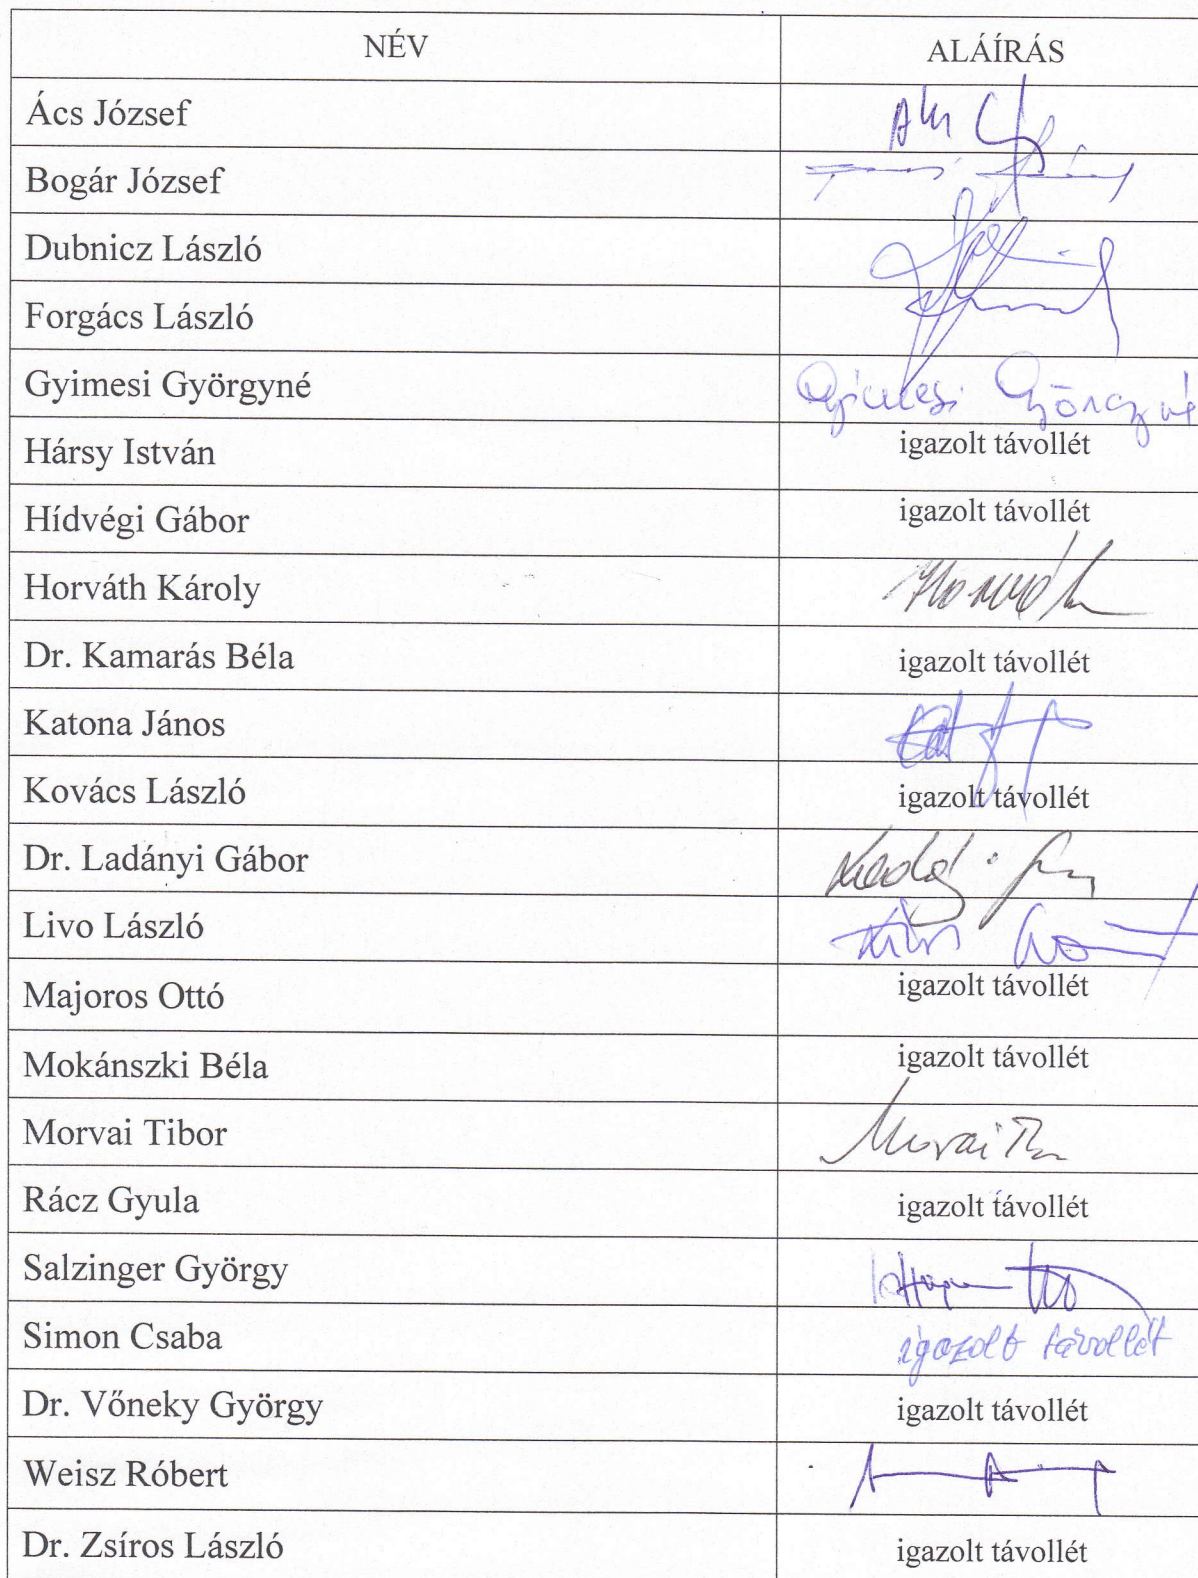 NÉV ALÁÍRÁS
Ács József
Bogár József
Dubnicz László
Forgács László
Gyimesi Györgyné Gyimesi Györgyné
Hársy István igazolt távollét
Hídvégi Gábor igazolt távollét
Horváth Károly Horváth
Dr. Kamarás Béla igazolt távollét
Katona János
Kovács László igazolt távollét
Dr. Ladányi Gábor
Livo László
Majoros Ottó igazolt távollét
Mokánszki Béla igazolt távollét
Morvai Tibor Morvai
Rácz Gyula igazolt távollét
Salzinger György
Simon Csaba igazolt távollét
Dr. Vőneky György igazolt távollét
Weisz Róbert
Dr. Zsíros László igazolt távollét